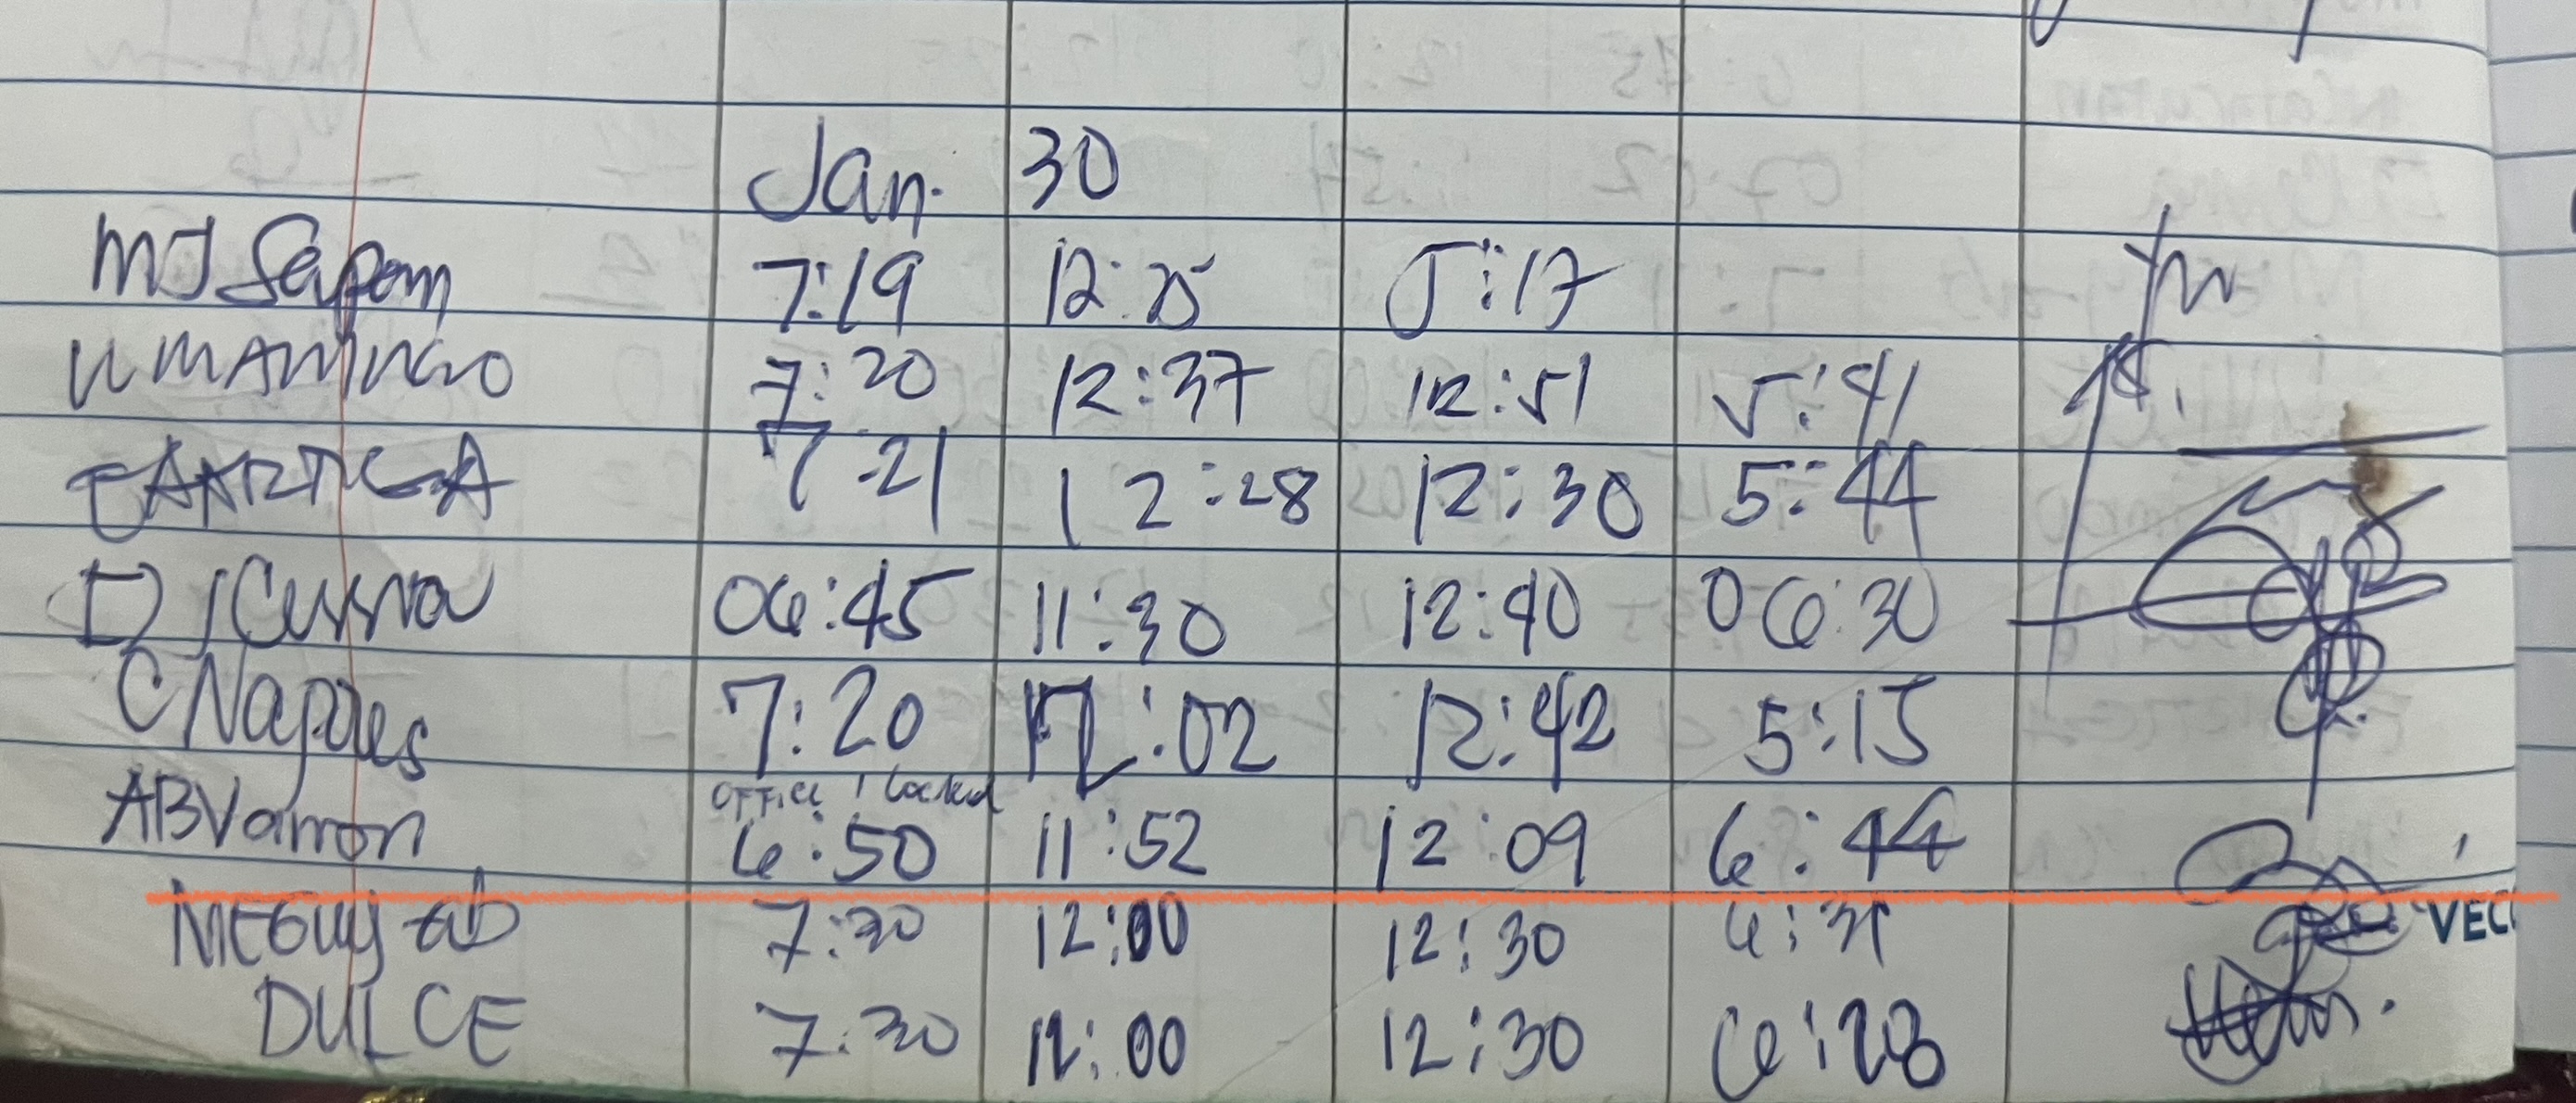 Jan. 30
MJ Sapom 7:19 12:25 5:17
7:20 12:37 12:51 5:41
7:21 12:28 12:30 5:44
06:45 11:30 12:40 06:30
C Napoles 7:20 12:02 12:42 5:15
OFFice Locked
ABVarron 6:50 11:52 12:09 6:44
7:30 12:00 12:30
VEC
DULCE 7:30 12:00 12:30 6:28